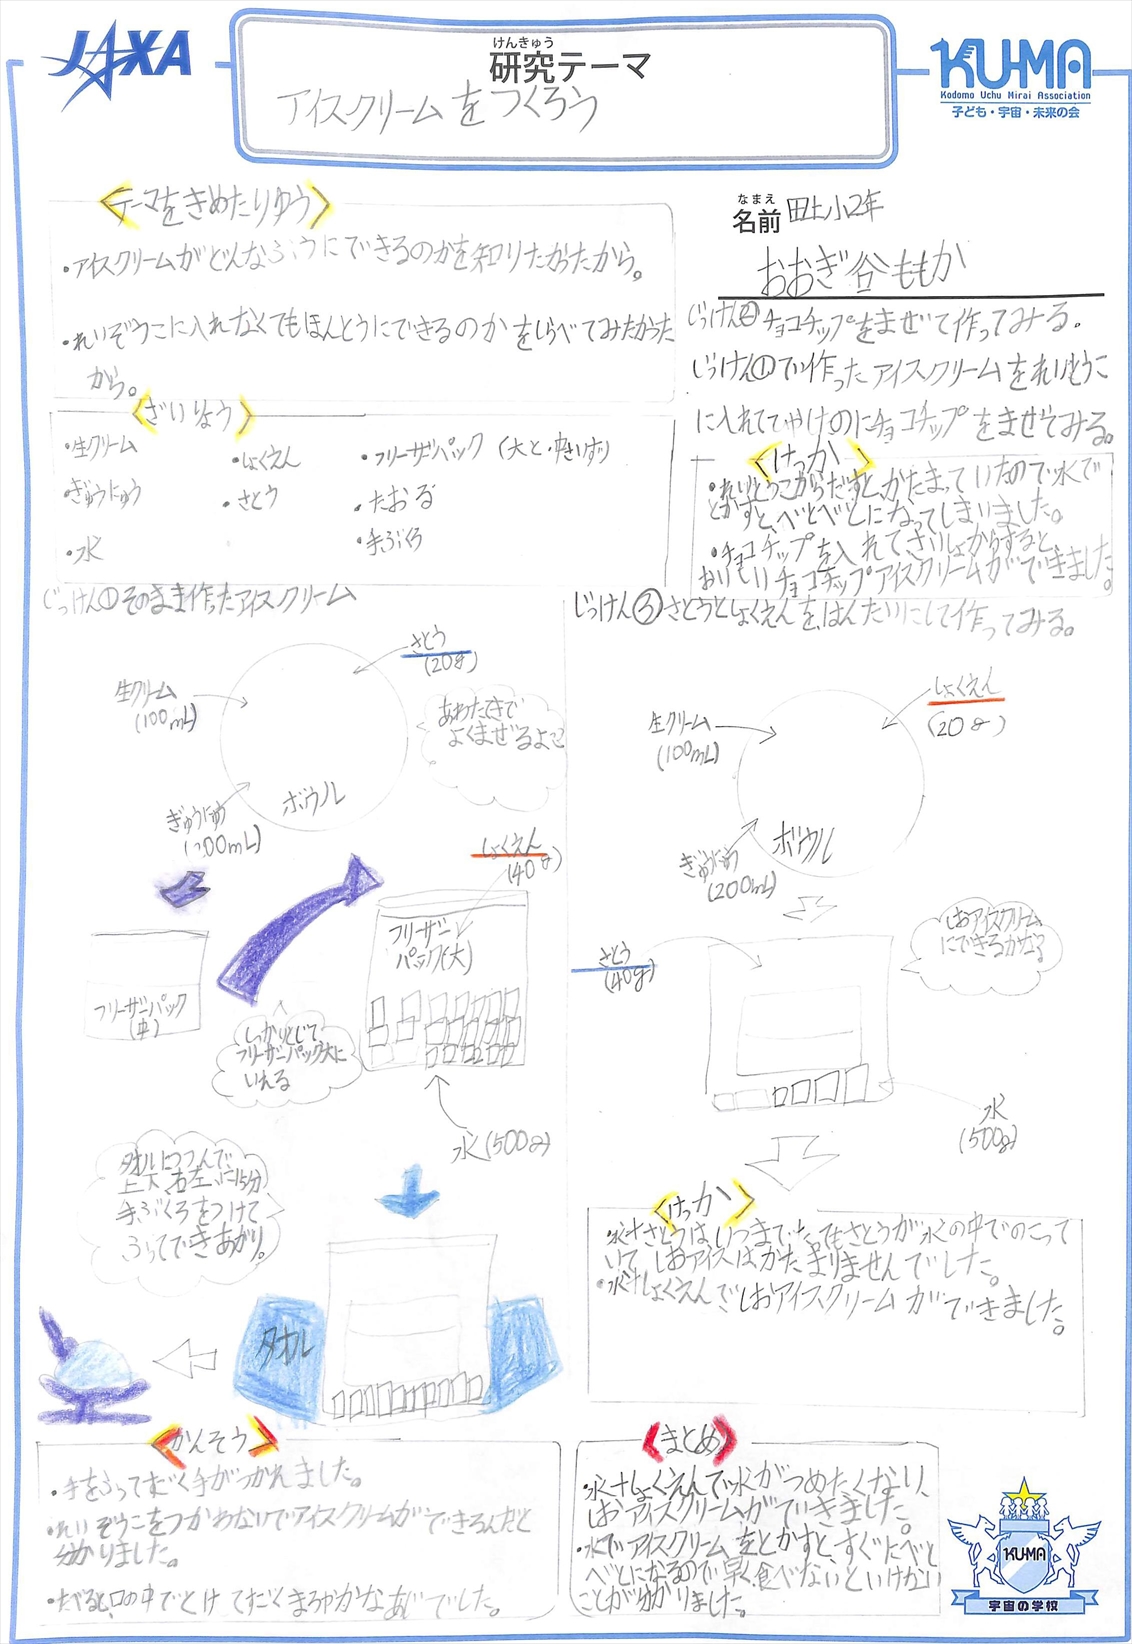 JAXA
けんきゅう
研究テーマ
アイスクリームをつくろう
KU-MA
Kodomo Uchu Mirai Association
子ども・宇宙・未来の会
なまえ
名前 田上小2年
おおぎ谷ももか
<テーマをきめたりゆう>
・アイスクリームがどんなふうにできるのかを知りたかったから。
・れいぞうこに入れなくてもほんとうにできるのかをしらべてみたかった
から。
<ざいりょう>
・生クリーム
・ぎゅうにゅう
・氷
・しょくえん
・さとう
・フリーザーパック(大と中
・たおる
・手ぶくろ
じっけん①そのまま作ったアイスクリーム
さとう
(20g)
生クリーム
(100mL)
ぎゅうにゅう
(200mL)
ボウル
あわたてきで
よくまぜるよ
しょくえん
(40g)
フリーザーパック
(中)
しっかりとじて、
フリーザーパック大に
いれる
フリーザー
パック(大)
氷(500g)
タオルにつつんで、
上下、右左、に15分
手ぶくろをつけて
ふってできあがり。
タオル
じっけん②チョコチップをまぜて作ってみる。
じっけん①で作ったアイスクリームをれいとうこ
に入れて
チョコチップをまぜてみる。
<けっか>
・れいとうこからだすと、かたまっていたので水で
とかすと、べとべとになってしまいました。
・チョコチップを入れて、さいしょからすると、
おいしいチョコチップアイスクリームができました。
じっけん③さとうとしょくえんを、はんたいにして作ってみる。
しょくえん
(20g)
生クリーム
(100mL)
ぎゅうにゅう
(200mL)
ボウル
しおアイスクリーム
にできるかな?
さとう
(40g)
氷
(500g)
<けっか>
・氷+さとうはいつまでたってもさとうが氷の中でのこって
いて、しおアイスはかたまりませんでした。
・氷+しょくえんでしおアイスクリームができました。
<かんそう>
・手をふってすごく手がつかれました。
・れいぞうこをつかわないでアイスクリームができるんだと
分かりました。
・たべると、口の中でとけてすごくまろやかなあじでした。
<まとめ>
・氷+しょくえんで氷がつめたくなり、
しおアイスクリームができました。
・水でアイスクリームをとかすと、すぐにべと
べとになるので早く食べないといけない
ことが分かりました。
KU-MA
宇宙の学校